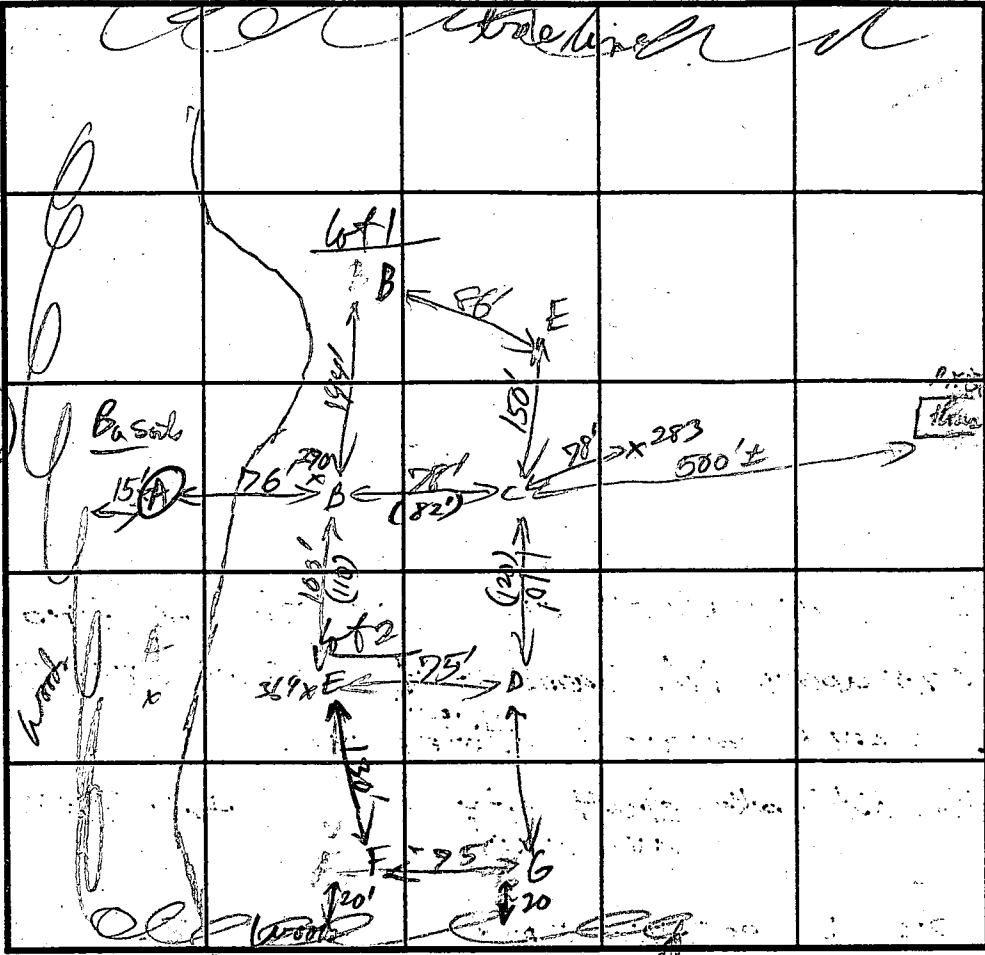 treeline
Lot 1
B
86'
E
150'
Ba Soils
15'
A
76
290
x
B
78'
(82')
C
78'
x 283
500' ±
103'
(110)
(120)
101'
Lot 2
woods
A
x
369 x E
75'
D
130'
F
95
G
20'
20
woods